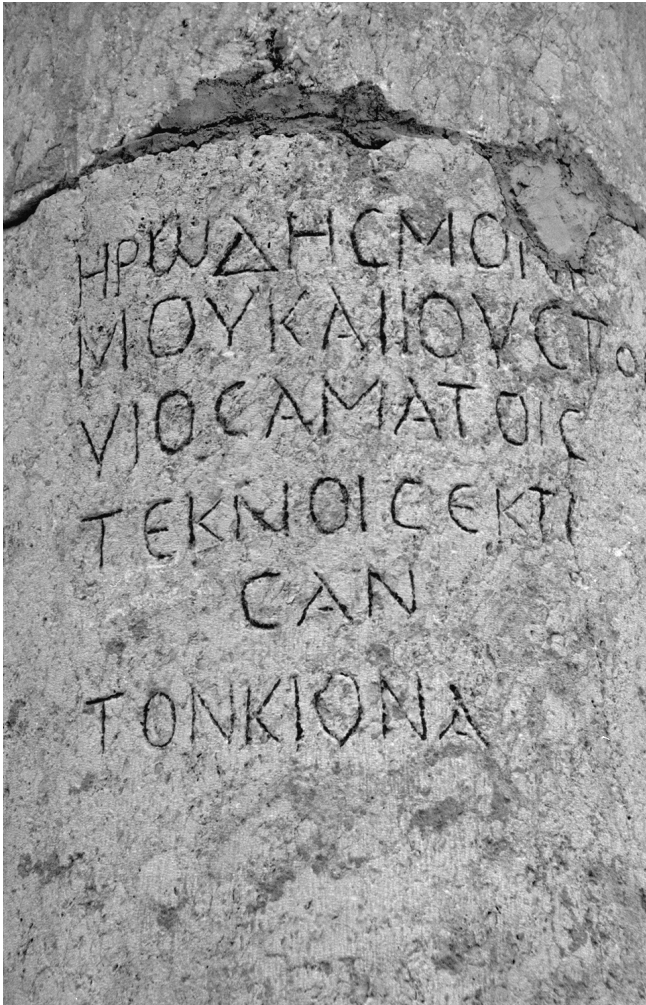 ΗΡΩΔΗCΜΟΝΙ
ΜΟΥΚΑΙΙΟΥCΤΟC
ΥΙΟCΑΜΑΤΟΙC
ΤΕΚΝΟΙCΕΚΤΙ
CΑΝ
ΤΟΝΚΙΟΝΑ